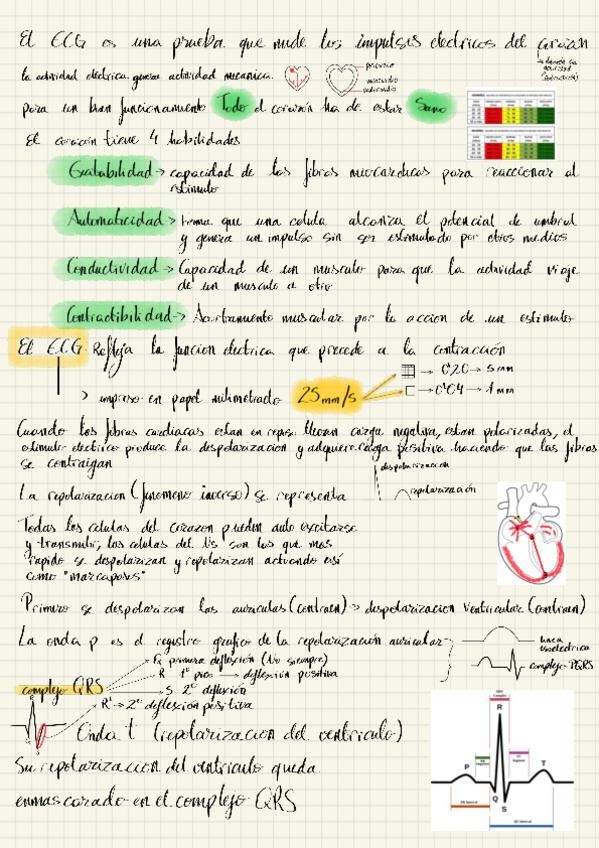 El ECG es una prueba que mide los impulsos electricos del corazon
la actividad electrica genera actividad mecanica.
para un buen funcionamiento Todo el corazón ha de estar Sano
El corazón tiene 4 habilidades
Excitabilidad → capacidad de las fibras miocardicas para reaccionar al
estimulo
Automaticidad → forma que una celula alcanza el potencial de umbral
y genera un impulso sin ser estimulado por otros medios
Conductividad → Capacidad de un musculo para que la actividad viaje
de un musculo a otro
Contractibilidad → Acortamiento muscular por la accion de un estimulo
El ECG Refleja la funcion electrica que precede a la contracción
→ 0'20 → 5 mm
impreso en papel milimetrado 25mm/s → 0'04 → 1 mm
Cuando las fibras cardiacas estan en reposo llevan carga negativa, estan polarizadas, el
estimulo electrico produce la despolarizacion y adquiere carga positiva haciendo que las fibras
se contraigan
despolarizacion
La repolarizacion (fenomeno inverso) se representa
repolarización
Todas las celulas del corazon pueden auto excitarse
y transmitir, las celulas del son las que mas
rapido se despolarizan y repolarizan actuando asi
como "marcapasos"
Primero se despolarizan las auriculas (contraen) → despolarizacion ventricular (contraen)
La onda p es el registro grafico de la repolarización auricular
linea
isoelectrica
complejo PQRS
Q primera deflexión (No siempre)
R 1º pico → deflexión positiva
complejo QRS
S 2º deflexión
R' → 2º deflexion positiva
Onda t (repolarizacion del ventriculo)
Su repolarizacion del ventriculo queda
enmascarado en el complejo QRS
R
P
T
Q
S